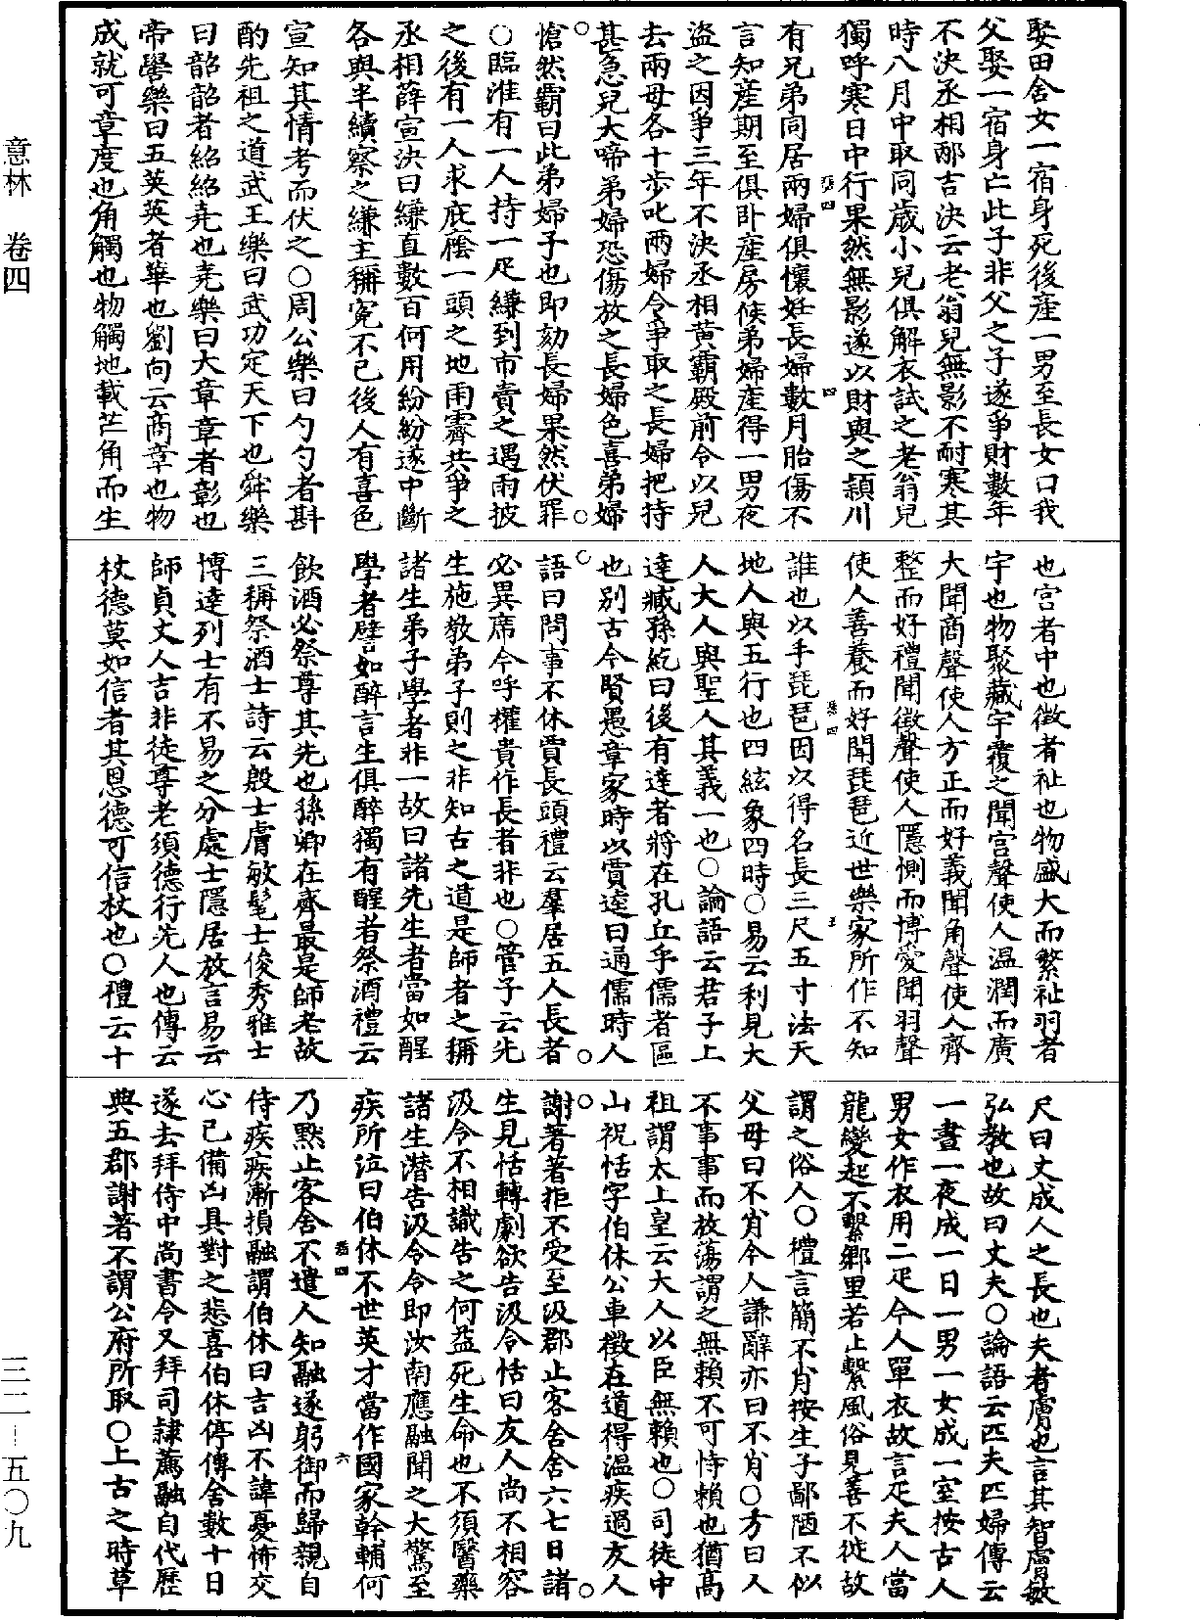 娶田舍女一宿身死後產一男至長女口我
父娶一宿身亡此子非父之子遂爭財數年
不決丞相邴吉決云老翁兒無影不耐寒其
時八月中取同歲小兒俱解衣試之老翁兒
獨呼寒日中行果然無影遂以財與之潁川
有兄弟同居兩婦俱懷妊長婦數月胎傷不
言知產期至俱卧產房候弟婦產得一男夜
盜之因爭三年不決丞相黃霸殿前令以兒
去兩母各十步叱兩婦令爭取之長婦把持
甚急兒大啼弟婦恐傷放之長婦色喜弟婦
愴然霸曰此弟婦子也即劾長婦果然伏罪
○臨淮有一人持一疋縑到市賣之遇雨披
之後有一人求庇廕一頭之地雨霽共爭之
丞相薛宣決曰縑直數百何用紛紛遂中斷
各與半續察之縑主稱冤不已後人有喜色
宣知其情考而伏之○周公樂曰勺勺者斟
酌先祖之道武王樂曰武功定天下也舜樂
曰韶韶者紹紹堯也堯樂曰大章章者彰也
帝嚳樂曰五英英者華也劉向云商章也物
成就可章度也角觸也物觸地載芒角而生
也宮者中也徵者祉也物盛大而繁祉羽者
宇也物聚藏宇覆之聞宮聲使人溫潤而廣
大聞商聲使人方正而好義聞角聲使人齊
整而好禮聞徵聲使人隱惻而博愛聞羽聲
使人善養而好聞琵琶近世樂家所作不知
誰也以手琵琶因以得名長三尺五寸法天
地人與五行也四絃象四時○易云利見大
人大人與聖人其義一也○論語云君子上
達臧孫紇曰後有達者將在孔丘乎儒者區
也別古今賢愚章家時以賈逵曰通儒時人
語曰問事不休賈長頭禮云羣居五人長者
必異席今呼權貴作長者非也○管子云先
生施教弟子則之非知古之道是師者之稱
諸生弟子學者非一故曰諸先生者當如醒
學者譬如醉言生俱醉獨有醒者祭酒禮云
飲酒必祭尊其先也孫卿在齊最是師老故
三稱祭酒士詩云殷士膚敏髦士俊秀雅士
博達列士有不易之分處士隱居放言易云
師貞丈人吉非徒尊老須德行先人也傳云
杖德莫如信者其恩德可信杖也○禮云十
尺曰丈成人之長也夫者膚也言其智膚敏
弘教也故曰丈夫○論語云匹夫匹婦傳云
一晝一夜成一日一男一女成一室按古人
男女作衣用二疋今人單衣故言疋夫人當
龍變起不繫鄉里若止繫風俗見善不徙故
謂之俗人○禮言簡不肖按生子鄙陋不似
父母曰不肖今人謙辭亦曰不肖○方曰人
不事事而放蕩謂之無賴不可恃賴也猶高
祖謂太上皇云大人以臣無賴也○司徒中
山祝恬字伯休公車徵在道得溫疾過友人
謝著著拒不受至汲郡止客舍舍六七日諸
生見恬轉劇欲告汲令恬曰友人尚不相容
汲令不相識告之何益死生命也不須醫藥
諸生潛告汲令令即汝南應融聞之大驚至
疾所泣曰伯休不世英才當作國家幹輔何
乃默止客舍不遣人知融遂躬御而歸親自
侍疾疾漸損融謂伯休曰吉凶不諱憂怖交
心已備凶具對之悲喜伯休停傳舍數十日
遂去拜侍中尚書令又拜司隸薦融自代歷
典五郡謝著不謂公府所取○上古之時草
意林 卷四
三二—五〇九